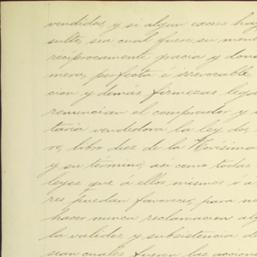 vendidos, y si algun exceso hay
sulte, sea cual fuese su mon
reciprocamente gracia y dona
mera, perfecta é irrevocable
cion y demás firmezas lega
renuncian el comprador y
taria vendedora la ley dos,
ro, libro diez de la Novisima
y su término, así como todas
leyes que á ellos mismos ó á
res puedan favorecer, para no
hacer nunca reclamacion alg
la validez y subsistencia de
sean cuales fueren las